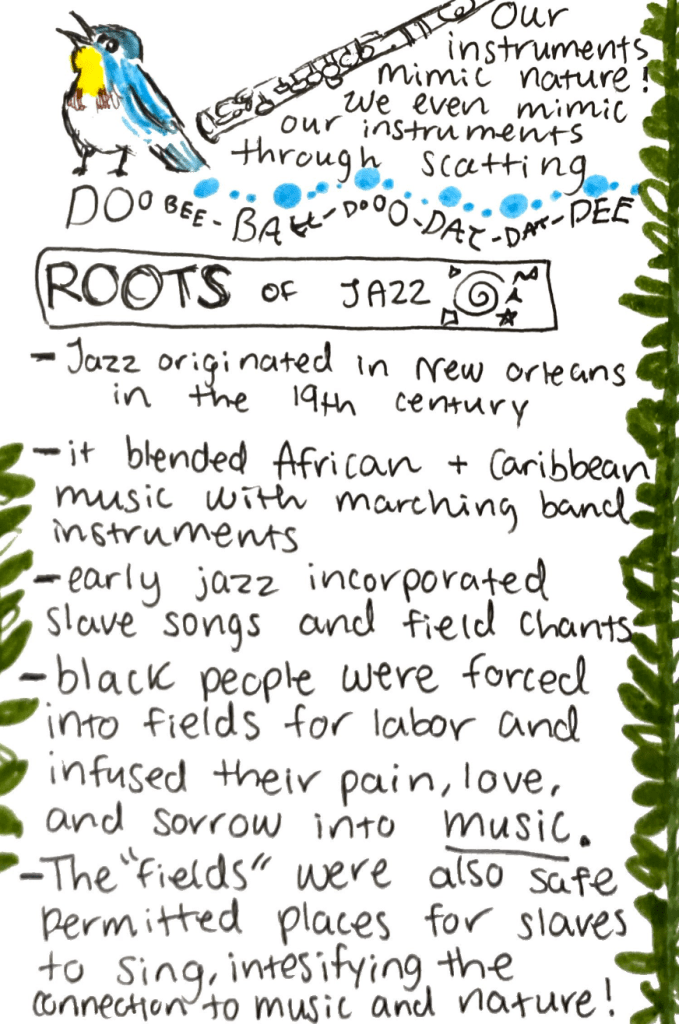 Our
instruments
mimic nature!
We even mimic
our instruments
through scatting
DOO BEE-BAH-DOOO-DAT-DAT-DEE
ROOTS OF JAZZ
- Jazz originated in New orleans
in the 19th century
- it blended African + Caribbean
music with marching band
instruments
- early jazz incorporated
slave songs and field chants
- black people were forced
into fields for labor and
infused their pain, love,
and sorrow into music.
- The "fields" were also safe
permitted places for slaves
to sing, intesifying the
connection to music and nature!